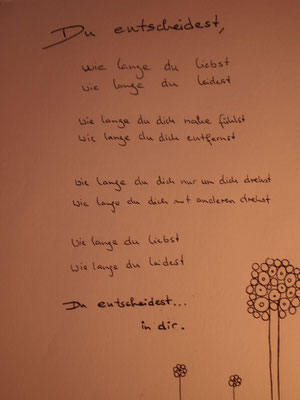 Du entscheidest,
wie lange du liebst
wie lange du leidest
wie lange du dich nahe fühlst
wie lange du dich entfernst
wie lange du dich nur um dich drehst
wie lange du dich mit anderen drehst
wie lange du liebst
wie lange du leidest
Du entscheidest...
in dir.